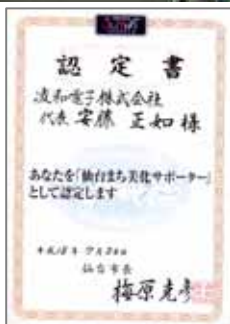 認定書
凌和電子株式会社
代表 安藤 正如 様
あなたを「仙台まち美化サポーター」
として認定します
仙台市長
梅原克彦